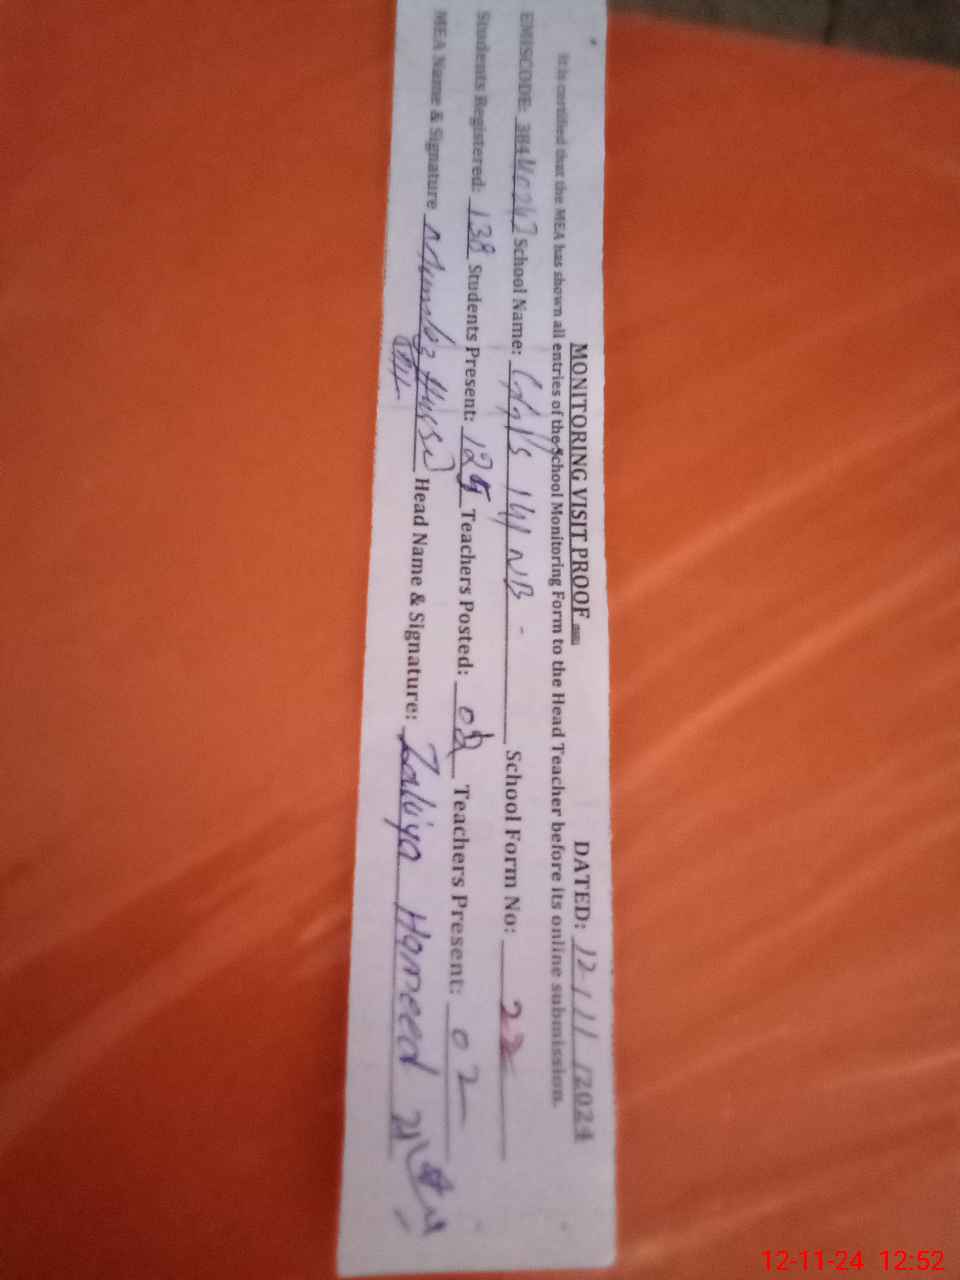 MONITORING VISIT PROOF DATED: 12/11/2024
It is certified that the MEA has shown all entries of the School Monitoring Form to the Head Teacher before its online submission.
EMISCODE: School Name: 141 NB - School Form No: 22
Students Registered: 138 Students Present: 125 Teachers Posted: 02 Teachers Present: 02
MEA Name & Signature Head Name & Signature: Zakiya Hameed
12-11-24 12:52